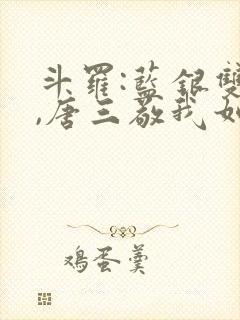 斗羅:藍銀雙
,唐三敬我如
鸡蛋羹